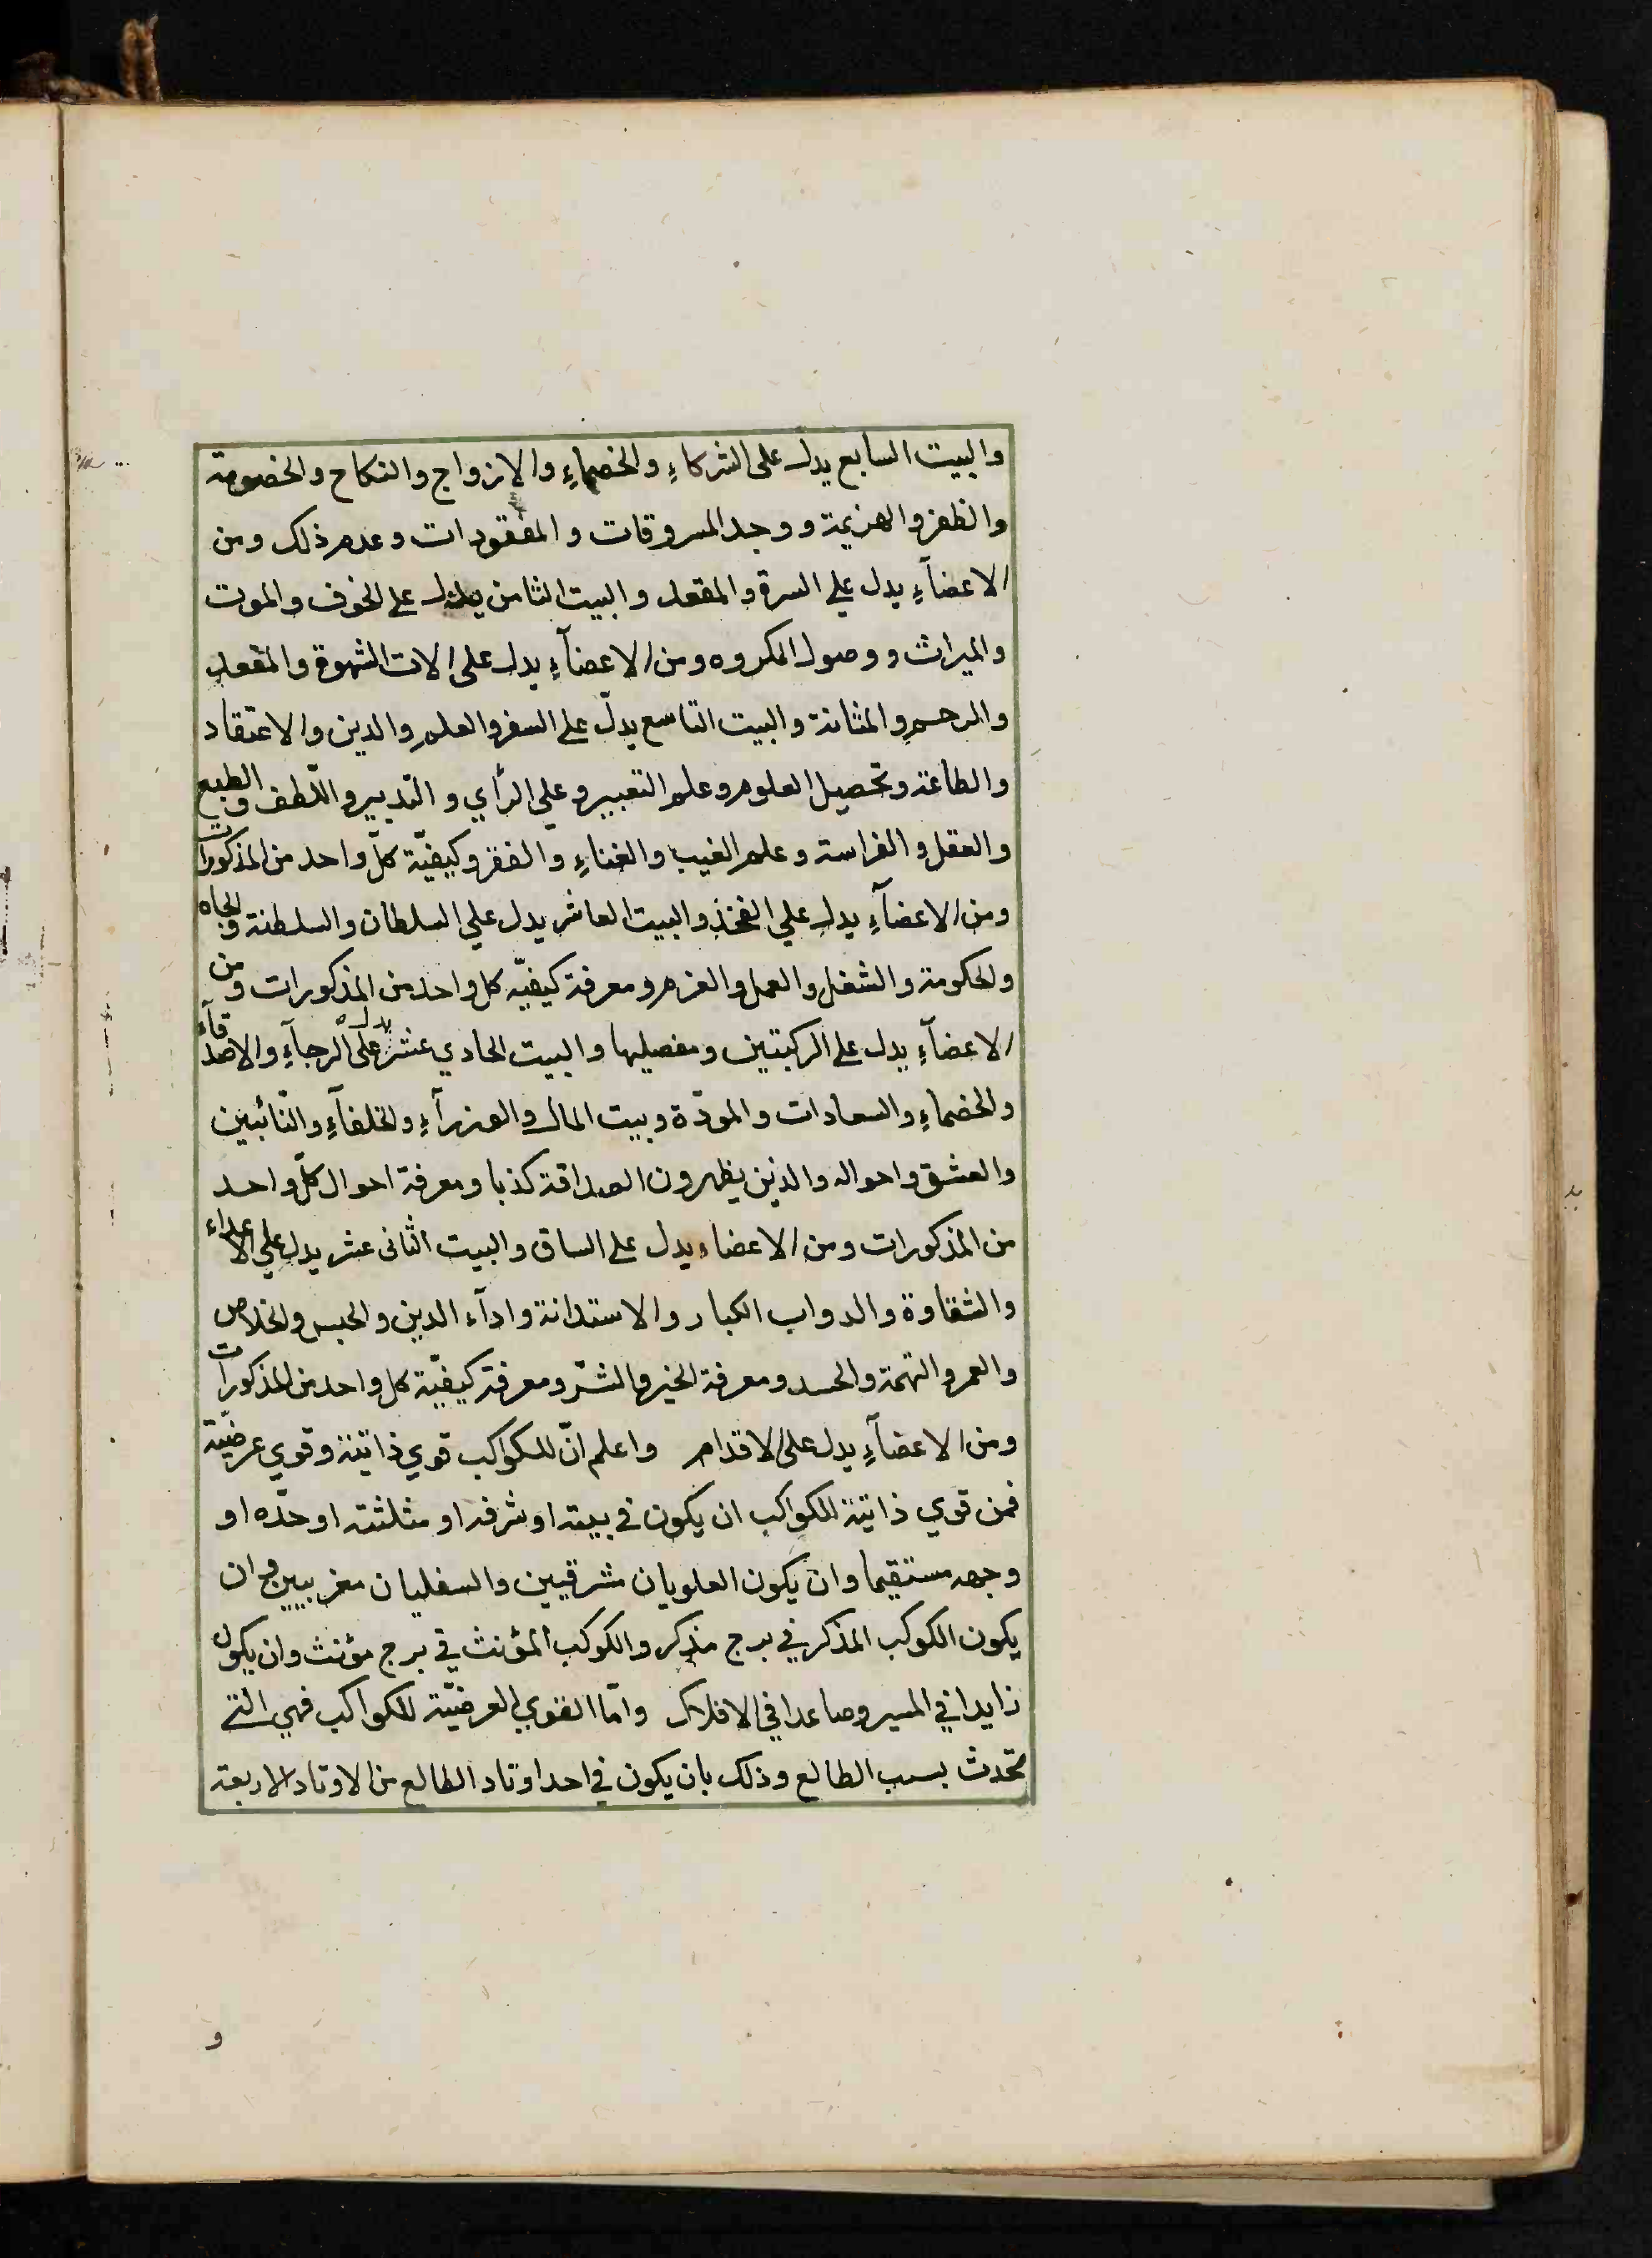 والبيت السابع يدل على الشركاءِ والخصماءِ والازواج والنكاح والخصومة
والظفر والهزيمة ووجد المسروقات والمفقودات وعدم ذلك ومن
الاعضآءِ يدل على السرة والمقعد والبيت الثامن يدل على الخوف والموت
والميراث ووصول المكروه ومن الاعضآءِ يدل على الات الشهوة والمقعد
والرحم والمثانة والبيت التاسع يدلّ على السفر والعلم والدين والاعتقاد
والطاعة وتحصيل العلوم وعلم التعبير وعلى الرأي والتدبير واللّطف والطبع
والعقل والفراسة وعلم الغيب والغناءِ والفقر وكيفيّة كلّ واحد من المذكورات
ومن الاعضآءِ يدل علي الفخذ والبيت العاشر يدل علي السلطان والسلطنة والجاه
والحكومة والشغل والعمل والعزم ومعرفة كيفيّة كل واحد من المذكورات ومن
الاعضآءِ يدل على الركبتين ومفصليها والبيت الحادي عشر يدل على الرجآءِ والاصدقآء
والخصماءِ والسعادات والمودّة وبيت المال والوزرآءِ والخلفآءِ والنّائبين
والعشق واحواله والذين يظهرون الصداقة كذبا ومعرفة احوال كلّ واحد
من المذكورات ومن الاعضاء يدل على الساق والبيت الثانى عشر يدل علي الاعداء
والشقاوة والدواب الكبار والاستدانة وادآء الدين والحبس والخلاص
والعمر والتهمة والحسد ومعرفة الخير والشرّ ومعرفة كيفيّة كل واحد من المذكورات
ومن الاعضآءِ يدل على الاقدام واعلم انّ للكواكب قوي ذاتية وقوي عرضيّة
فمن قوي ذاتية للكواكب ان يكون في بيته او شرفه او مثلثته او حدّه او
وجهه مستقيما وان يكون العلويان مشرقيين والسفليان مغربيين وان
يكون الكوكب المذكر في برج مذكر والكوكب المؤنث في برج مؤنث وان يكون
زايدا في المسير وصاعدا في الافلاك وامّا القوي العرضيّة للكواكب فهي الّتي
تحدث بسبب الطالع وذلك بان يكون في احد اوتاد الطالع من الاوتاد الاربعة
و